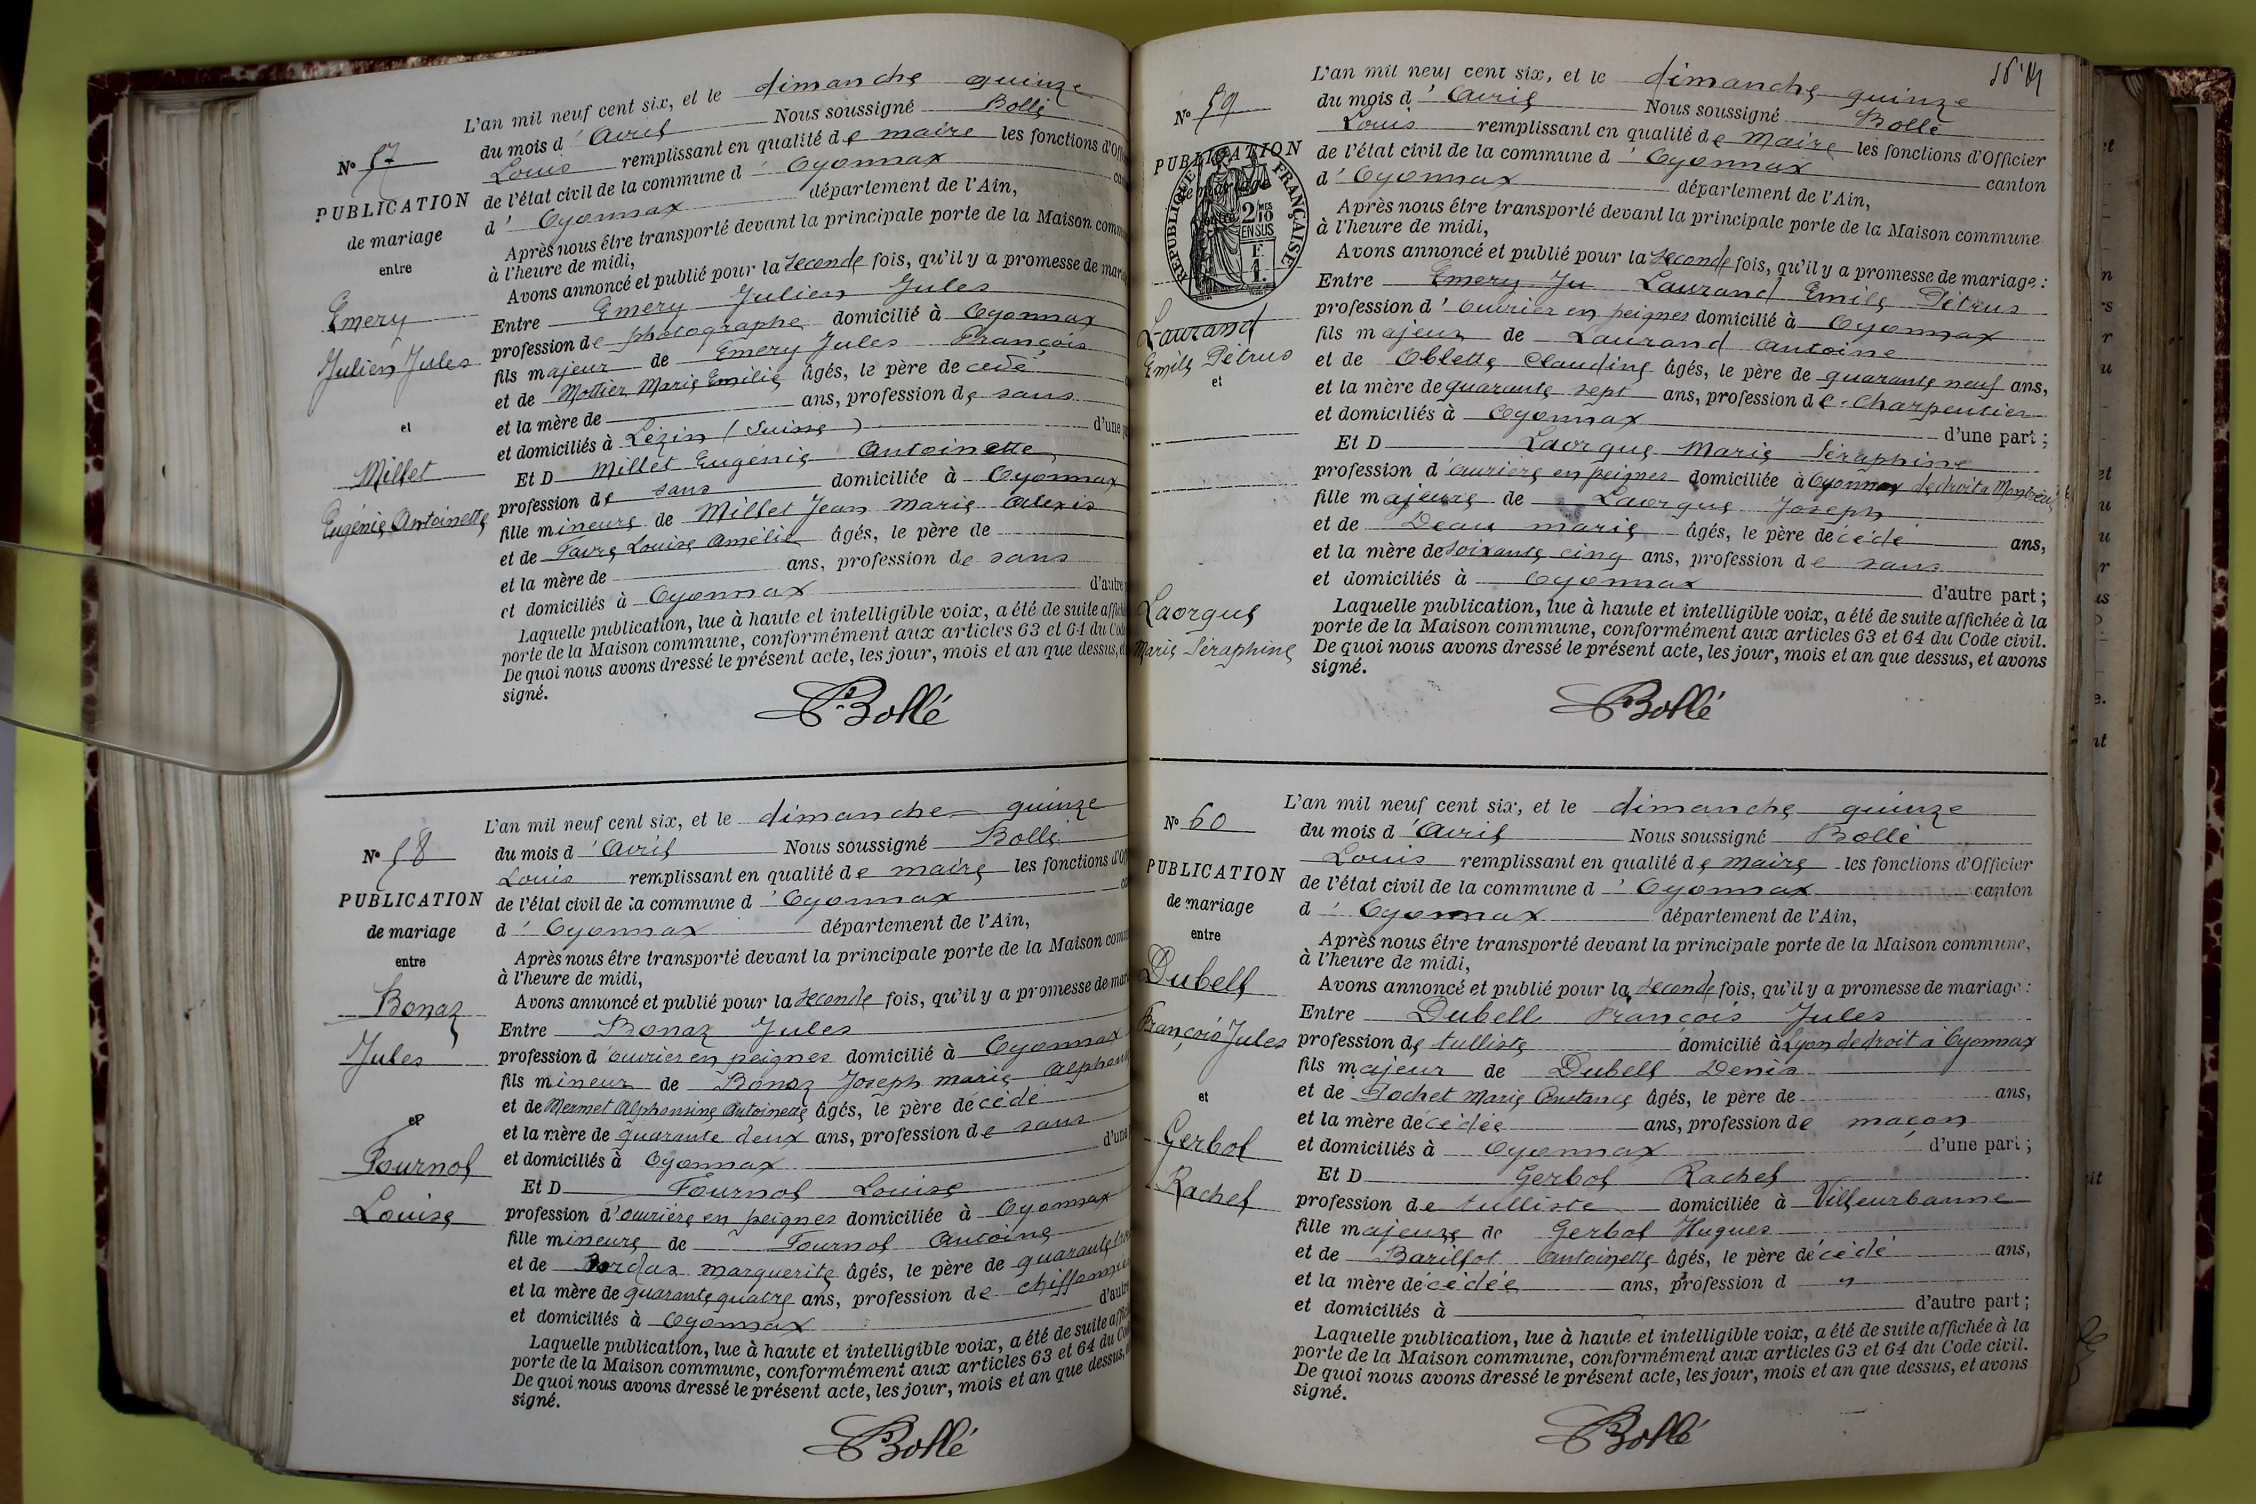 L'an mil neuf cent six, et le dimanche quinze
du mois d'Avril Nous soussigné Bollé
Louis remplissant en qualité de maire les fonctions d'Off
de l'état civil de la commune d'Oyonnax
d'Oyonnax département de l'Ain,
Après nous être transporté devant la principale porte de la Maison comm
à l'heure de midi,
Avons annoncé et publié pour la seconde fois, qu'il y a promesse de mar
Entre Emery Julien Jules
profession de photographe domicilié à Oyonnax
fils majeur de Emery Jules François
et de Mottier Marie Emilie âgés, le père de cédé
et la mère de ans, profession de sans
et domiciliés à Lézin (Suisse) d'une
Et D Millet Eugénie Antoinette
profession de sans domiciliée à Oyonnax
fille mineure de Millet Jean Marie Alexis
et de Favre Louise Amélie âgés, le père de
et la mère de ans, profession de sans
et domiciliés à Oyonnax d'autre
Laquelle publication, lue à haute et intelligible voix, a été de suite affich
porte de la Maison commune, conformément aux articles 63 et 64 du Code
De quoi nous avons dressé le présent acte, les jour, mois et an que dessus, et
signé.
Bollé
N° 57
PUBLICATION
de mariage
entre
Emery
Julien Jules
et
Millet
Eugénie Antoinette
L'an mil neuf cent six, et le dimanche quinze
du mois d'Avril Nous soussigné Bollé
Louis remplissant en qualité de maire les fonctions d'Off
de l'état civil de la commune d'Oyonnax
d'Oyonnax département de l'Ain,
Après nous être transporté devant la principale porte de la Maison comm
à l'heure de midi,
Avons annoncé et publié pour la seconde fois, qu'il y a promesse de mar
Entre Bonaz Jules
profession d'ouvrier en peignes domicilié à Oyonnax
fils mineur de Bonaz Joseph Marie Alphon
et de Mermet Alphonsine Antoinette âgés, le père décédé
et la mère de quarante deux ans, profession de sans
et domiciliés à Oyonnax d'une
Et D Fournol Louise
profession d'ouvrière en peignes domiciliée à Oyonnax
fille mineure de Fournol Antoine
et de Bordas marguerite âgés, le père de quarante
et la mère de quarante quatre ans, profession de chiffonnier
et domiciliés à Oyonnax d'autre
Laquelle publication, lue à haute et intelligible voix, a été de suite affich
porte de la Maison commune, conformément aux articles 63 et 64 du Co
De quoi nous avons dressé le présent acte, les jour, mois et an que dessus,
signé.
Bollé
N° 58
PUBLICATION
de mariage
entre
Bonaz
Jules
et
Fournol
Louise
L'an mil neuf cent six, et le dimanche quinze
du mois d'Avril Nous soussigné Bollé
Louis remplissant en qualité de Maire les fonctions d'Officier
de l'état civil de la commune d'Oyonnax
d'Oyonnax département de l'Ain, canton
Après nous être transporté devant la principale porte de la Maison commune
à l'heure de midi,
Avons annoncé et publié pour la seconde fois, qu'il y a promesse de mariage :
Entre Emery Ju Laurand Emile Pétrus
profession d'ouvrier en peignes domicilié à Oyonnax
fils majeur de Laurand Antoine
et de Oblette Claudine âgés, le père de quarante neuf ans,
et la mère de quarante sept ans, profession de Charpentier
et domiciliés à Oyonnax d'une part ;
Et D Laorgue Marie Séraphine
profession d'ouvrière en peignes domiciliée à Oyonnax de droit à
fille majeure de Laorgue Joseph
et de Deau marie âgés, le père décédé ans,
et la mère de soixante cinq ans, profession de sans
et domiciliés à Oyonnax d'autre part ;
Laquelle publication, lue à haute et intelligible voix, a été de suite affichée à la
porte de la Maison commune, conformément aux articles 63 et 64 du Code civil.
De quoi nous avons dressé le présent acte, les jour, mois et an que dessus, et avons
signé.
Bollé
N° 59
PUBLICATION
de mariage
RÉPUBLIQUE FRANÇAISE
2/10MES
EN SUS
Laurand
Emile Pétrus
et
Laorgue
Marie Séraphine
L'an mil neuf cent six, et le dimanche quinze
du mois d'Avril Nous soussigné Bollé
Louis remplissant en qualité de maire les fonctions d'Officier
de l'état civil de la commune d'Oyonnax canton
d'Oyonnax département de l'Ain,
Après nous être transporté devant la principale porte de la Maison commune,
à l'heure de midi,
Avons annoncé et publié pour la seconde fois, qu'il y a promesse de mariage :
Entre Dubell François Jules
profession de tulliste domicilié à Lyon de droit à Oyonnax
fils majeur de Dubell Denis
et de Rochet Marie Constance âgés, le père de ans,
et la mère décédée ans, profession de maçon
et domiciliés à Oyonnax d'une part ;
Et D Gerbol Rachel
profession de tulliste domiciliée à Villeurbanne
fille majeure de Gerbol Hugues
et de Barillot Antoinette âgés, le père décédé ans,
et la mère décédée ans, profession d "
et domiciliés à d'autre part ;
Laquelle publication, lue à haute et intelligible voix, a été de suite affichée à la
porte de la Maison commune, conformément aux articles 63 et 64 du Code civil.
De quoi nous avons dressé le présent acte, les jour, mois et an que dessus, et avons
signé.
Bollé
N° 60
PUBLICATION
de mariage
entre
Dubell
François Jules
et
Gerbol
Rachel